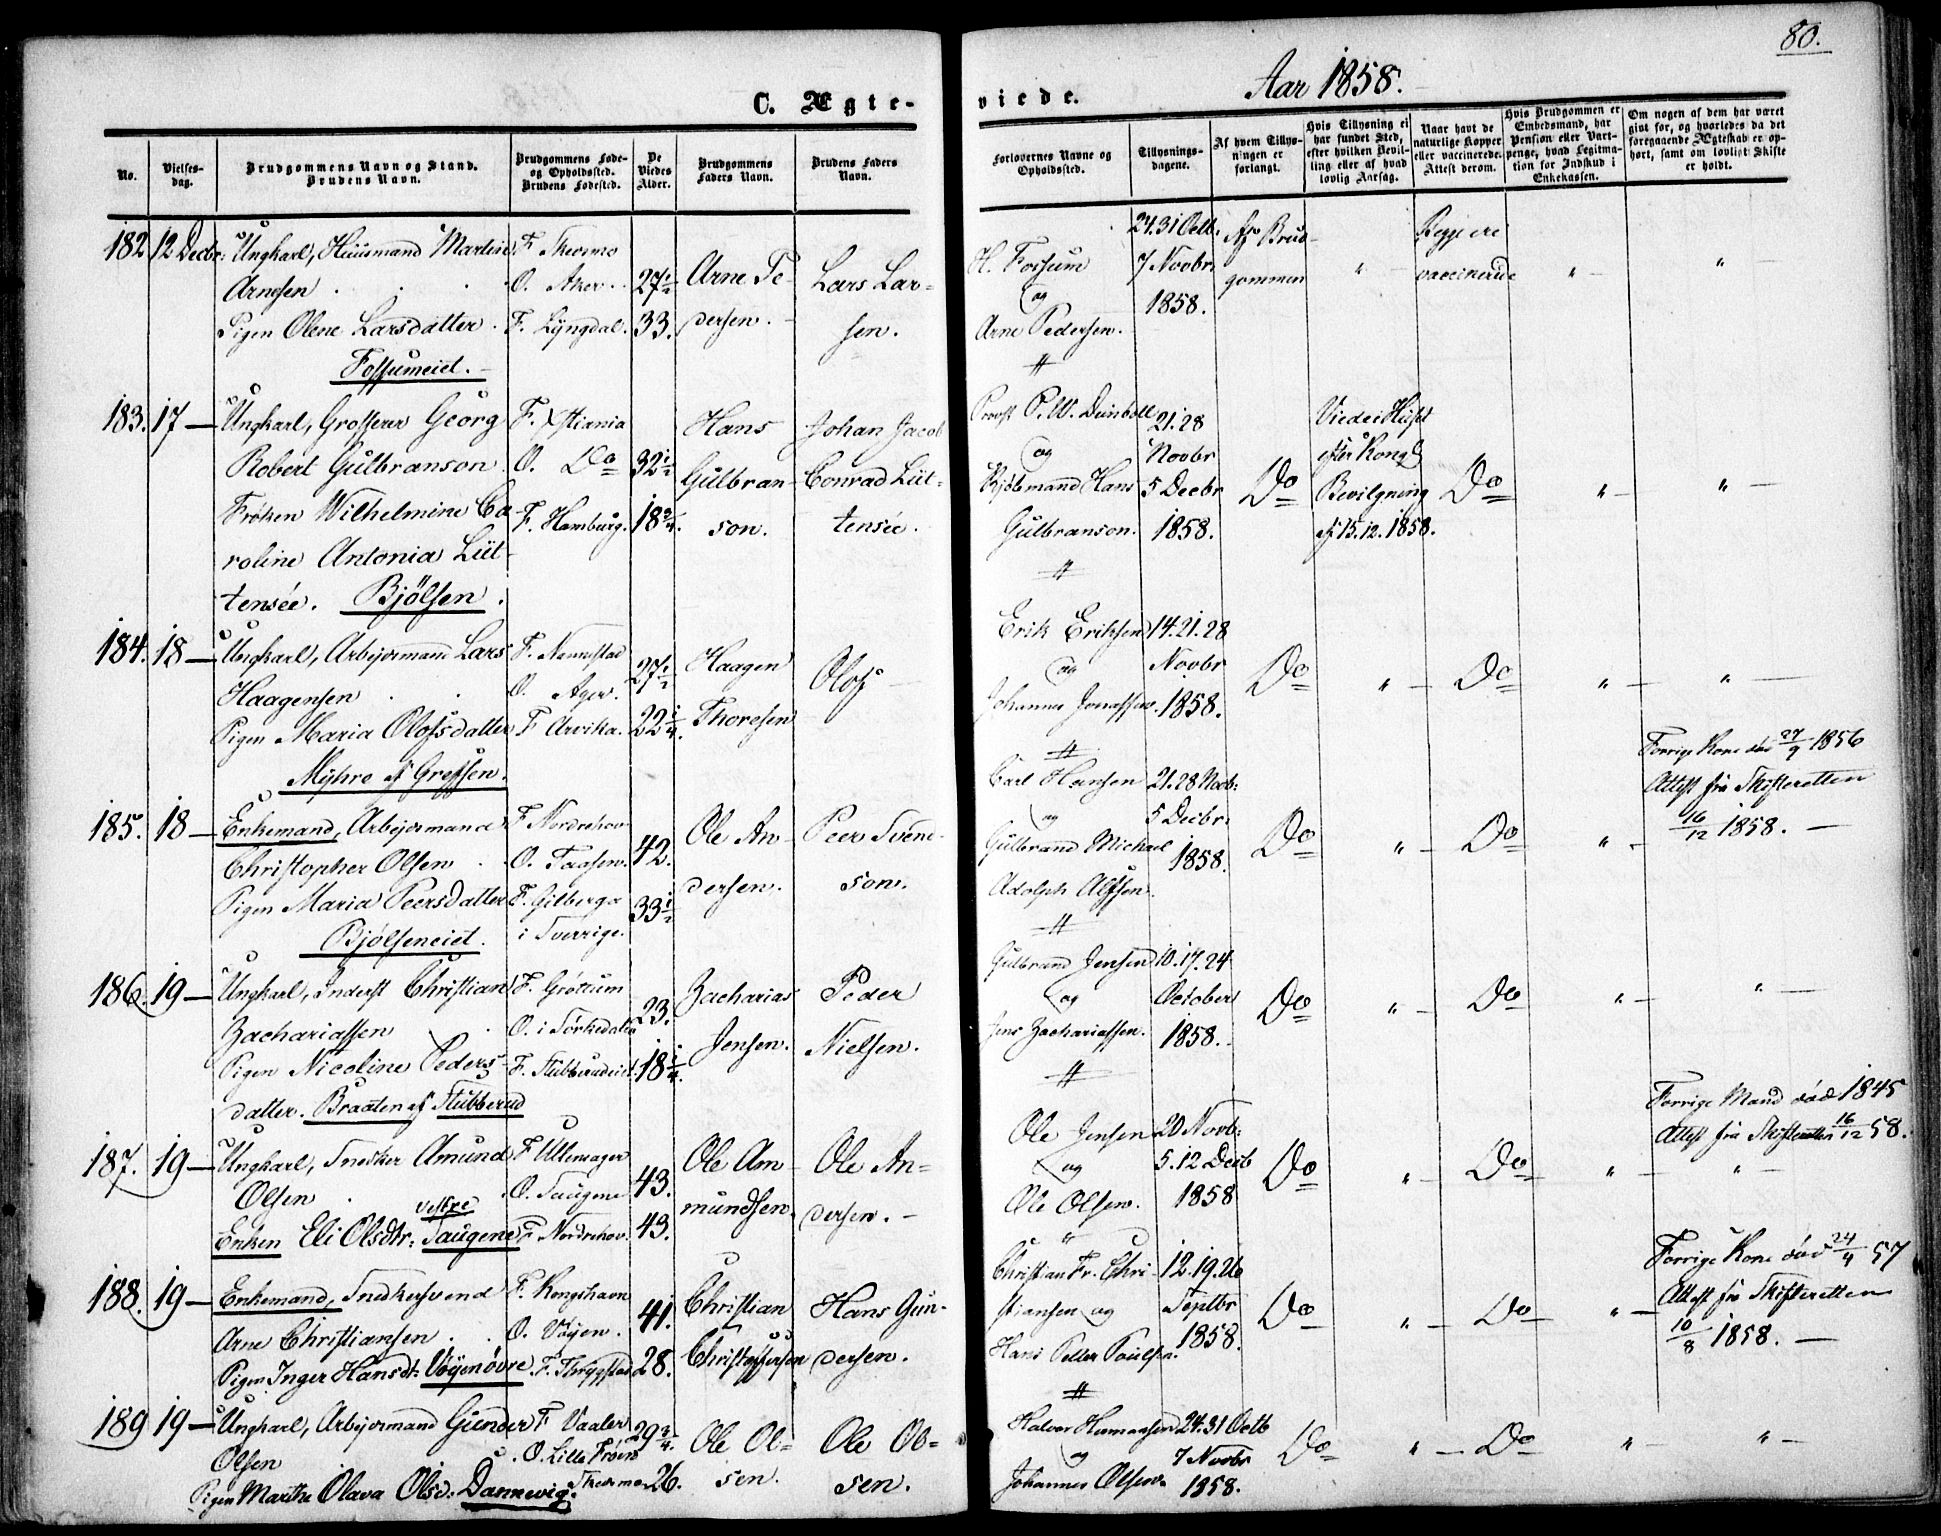 80.
C. Ægte-
viede.
Aar 1858.
No.
Vielses-
dag.
Brudgommens Navn og Stand.
Brudens Navn.
Brudgommens Føde-
og Opholdssted.
Brudens Fødested.
De
Viedes
Alder.
Brudgommens
Faders Navn.
Brudens Faders
Navn.
Forlovernes Navne og
Opholdssted.
Tillysnings-
dagene.
Af hvem Tillys-
ningen er
forlangt.
Hvis Tillysning ei
har fundet Sted,
efter hvilken Bevil-
ling eller af hvad
lovlig Aarsag.
Naar havt de
naturlige Kopper
eller vaccinerede.
Attest derom.
Hvis Brudgommen er
Embedsmand, har
Pension eller Vart-
penge, hvad Legitima-
tion for Indskud i
Enkekassen.
Om nogen af dem har været
gift før, og hvorledes da det
foregaaende Ægteskab er op-
hørt, samt om lovligt Skifte
er holdt.
182 12 Decbr: Ungkarl, Huusmand Martin
Arnesen
Pigen Olene Larsdatter.
Fossumeiet.
F. Thermo
O. Aker.
F. Lyngdal.
27 1/2
33.
Arne Pe-
dersen.
Lars Lar-
sen.
H. Fossum
og
Arne Pedersen.
24.31 Octb.
7 Novbr.
1858.
Af Brud-
gommen
"
Begge ere
vaccinerede
"
"
183. 17 — Ungkarl, Grosserer Georg
Robert Gulbranson.
Frøken Wilhelmine Ca-
roline Antonia Lüt-
tensée. Bjölsen.
F. Xstiania
O. Do
F. Hamburg.
32 1/2
18 3/4.
Hans
Gulbran-
son.
Johan Jacob
Conrad Lüt-
tensée.
Provst P. W. Deinboll
og
Kjøbmand Hans
Gulbranson.
21.28
Novbr
5 Decbr
1858.
Do
Viede i Huset
efter Kongl
Bevilgning
af 15.12.1858.
Do
"
"
184. 18 — Ungkarl, Arbejdsmand Lars
Haagensen
Pigen Maria Olofsdatter
Myhre af Grefsen.
F. Nannestad
O. Ager.
F. Arvika.
27 1/2
22 1/4.
Haagen
Thoresen
Olof
Erik Eriksen
og
Johannes Jonassen.
14.21.28
Novbr
1858.
Do
"
Do
"
"
185. 18 — Enkemand, Arbejdsmand
Christopher Olsen
Pigen Maria Peersdatter
Bjølseneiet.
F. Nordrehov
O. Taasen.
F. Gilberga
i Sverrige.
42.
33 1/2
Ole An-
dersen.
Peer Svend-
son.
Carl Hansen
og
Gulbrand Michael
Adolph Alfsen.
21.28 Novb:
5 Decbr.
1858.
Do
"
Do
"
Forrige Kone død 27/9 1856
Attest fra Skifteretten
16/12 1858.
186. 19 — Ungkarl, Inderst Christian
Zachariassen
Pigen Nicoline Peders-
datter. Braaten af Stubberud
F. Grøttum
O. i Sørkedalen
F. Stubberudeiet.
23.
18 1/4.
Zacharias
Jensen.
Peder
Nielsen.
Gulbrand Jensen
og
Jens Zachariassen.
10.17.24
October
1858.
Do
"
Do
"
"
187. 19 — Ungkarl, Snedker Amund
Olsen
Enken Eli Olsdtr: vestre Saugene
F. Ullensager
O. Saugene
F. Nordrehov.
43.
43.
Ole Am-
mundsen.
Ole An-
dersen.
Ole Jensen
og
Ole Olsen.
20 Novb:
5.12 Decb
1858
Do
"
Do
"
Forrige Mand død 1845
Attest fra Skifteretten 16/12 58.
"
188. 19 — Enkemand, Snedkersvend
Arne Christiansen
Pigen Inger Hansdt: Vøyenøvre
F. Kongshavn
O. Vøyen.
F. Thrygstad
41.
28.
Christian
Christoffersen
Hans Gun-
dersen.
Christian Fr. Chri-
stiansen og
Hans Petter Poulsen.
12.19.26
Septbr
1858.
Do
"
Do
"
Forrige Kone død 24/4 57
Attest fra Skifteretten
10/8 1858.
189 19 — Ungkarl, Arbejdsmand Gunder
Olsen
Pigen Marthe Olava Olsd: Dannevig.
F. Vaaler
O. Lille Frøen
Thermo
29 3/4.
26.
Ole Ol-
sen.
Ole Ol-
sen.
Halvor Hermansen
og
Johannes Olsen.
24.31 Octb
7 Novbr
1858.
Do
"
Do
"
"